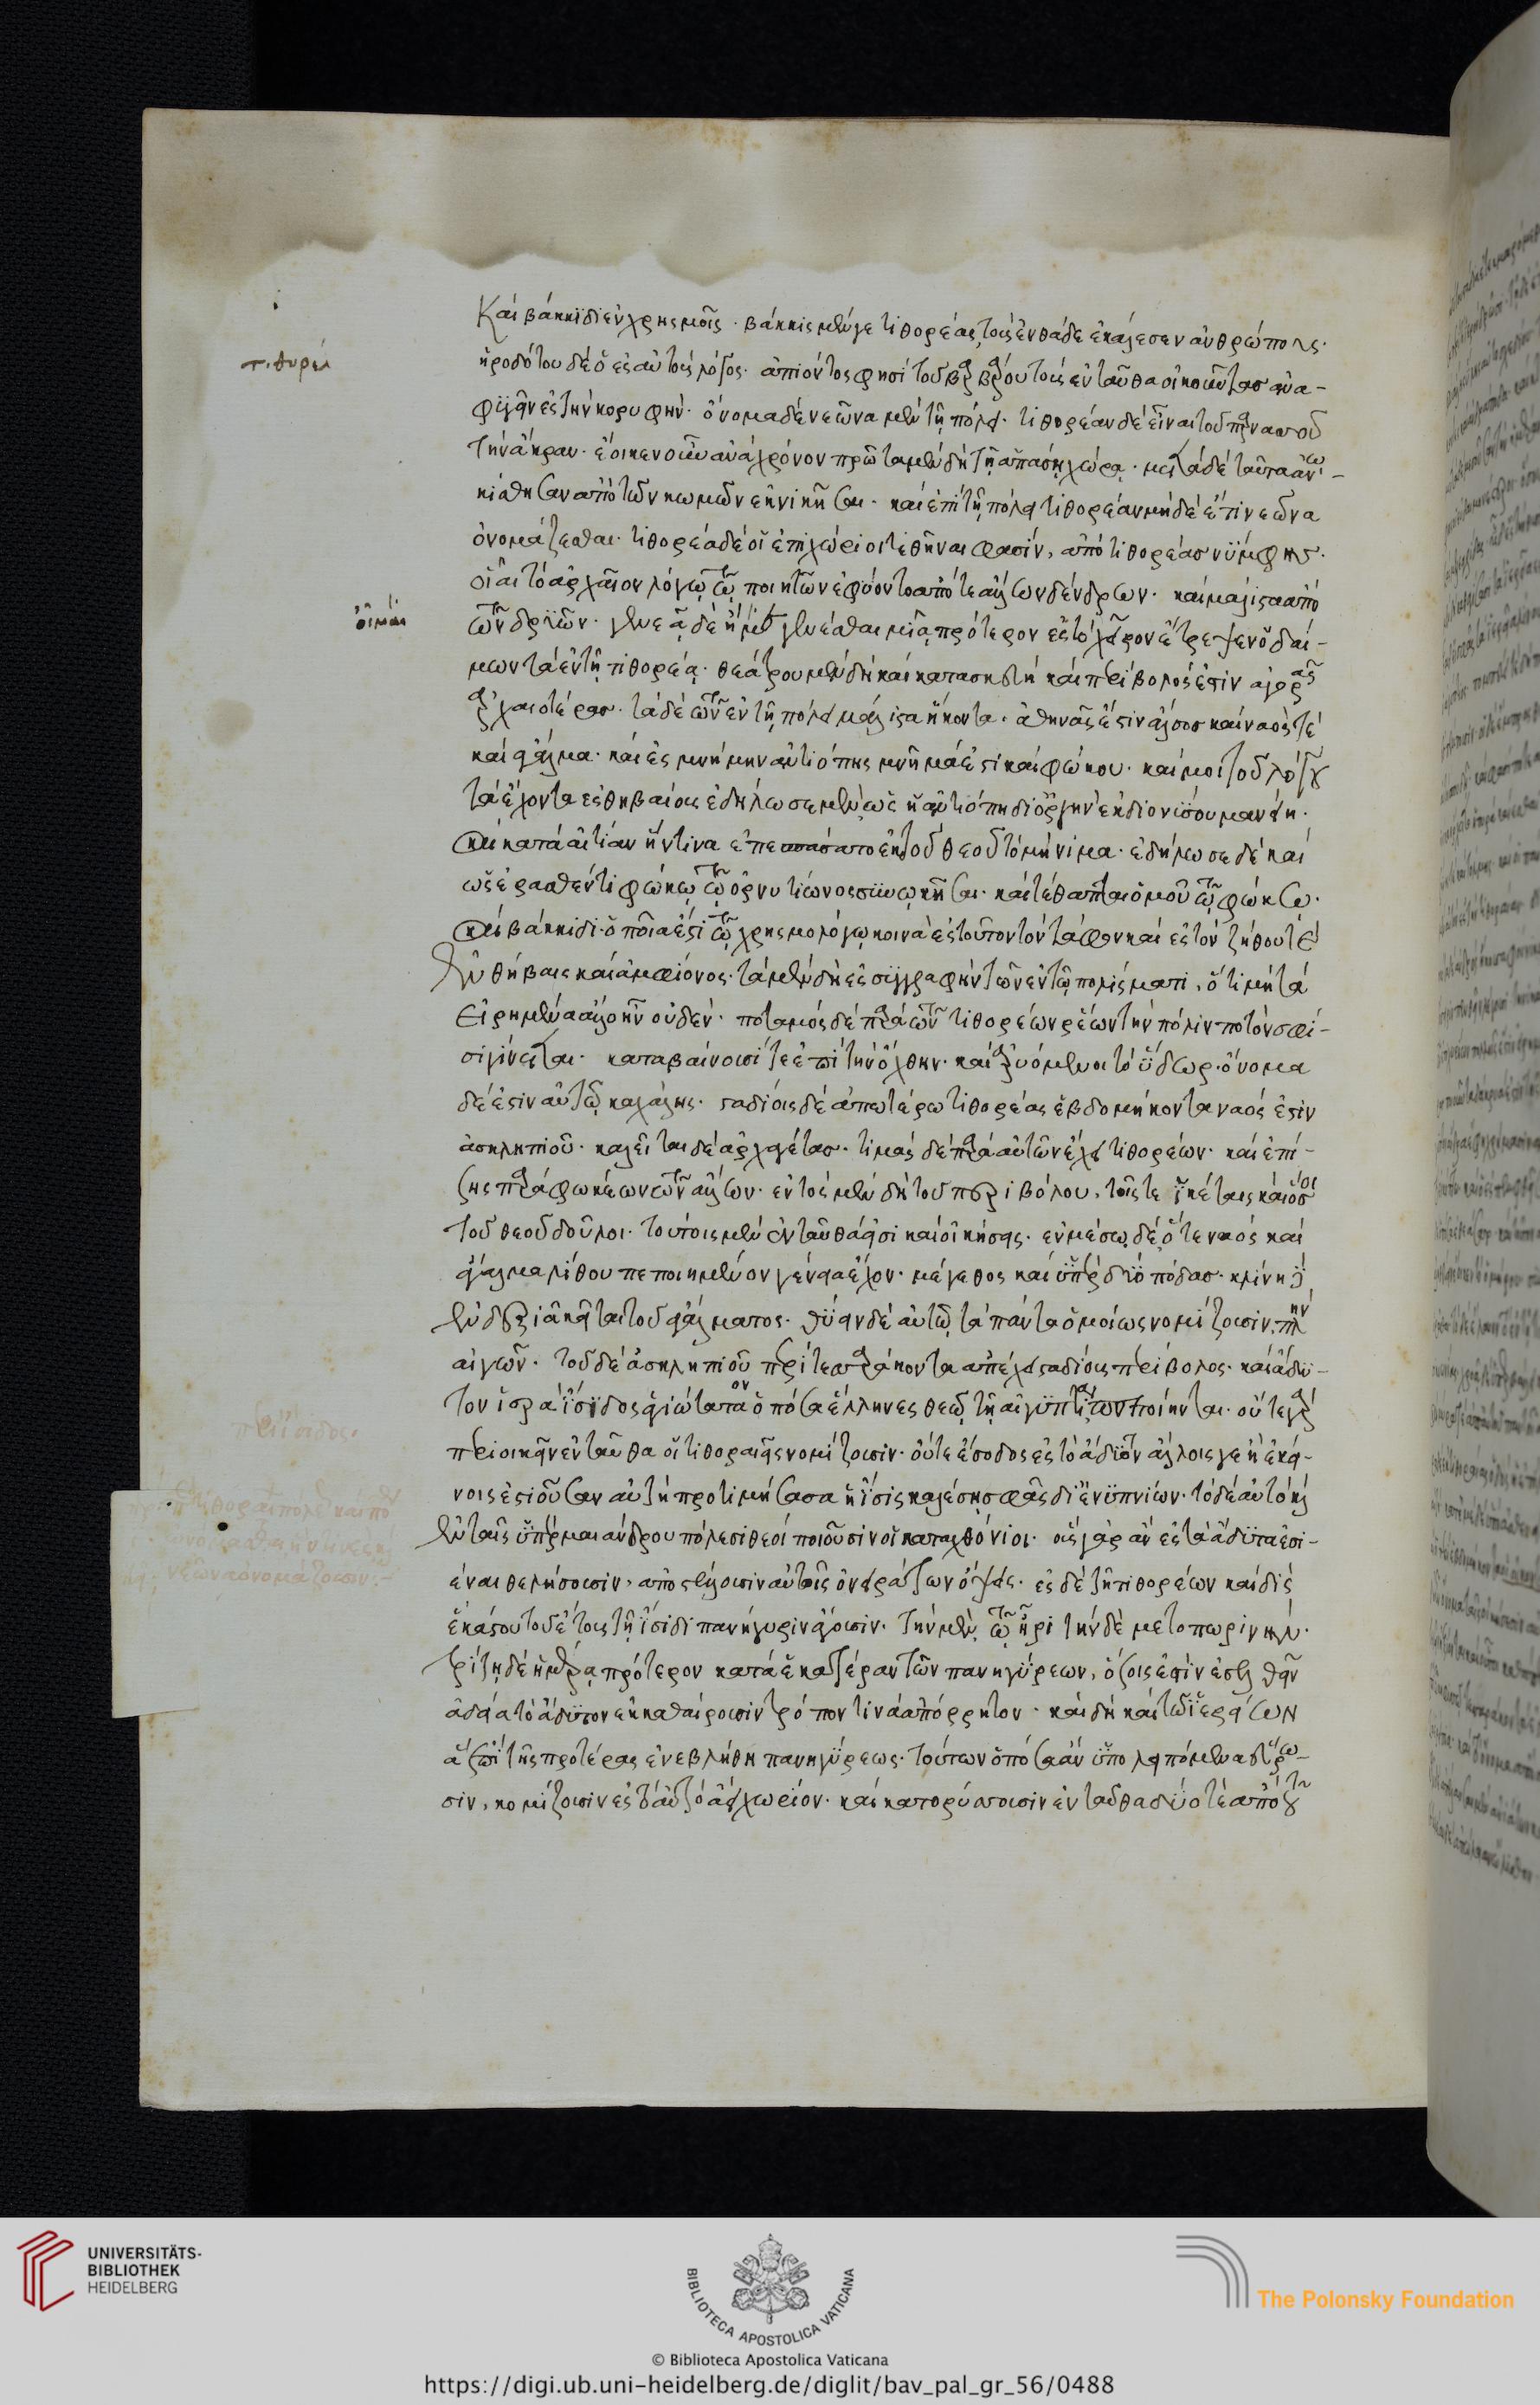 τιθορέα
Καὶ βάκιδι ἐν χρησμοῖς · βάκις μὲν γε τιθορέας τοὺς ἐνθάδε ἐκάλεσεν ἀνθρώπους ·
ἡροδότου δὲ ὁ ἐς αὐτοὺς λόγος · ἀπιόντος φησὶ τοῦ βαρβάρου τοὺς ἐνταῦθα οἰκοῦντας ἀνα-
φυγεῖν ἐς τὴν κορυφήν · ὄνομα δὲ νεῶνα μὲν τῇ πόλει · τιθορέαν δὲ εἶναι τοῦ παρνασσοῦ
τὴν ἄκραν · ἔοικεν οὖν ἀνὰ χρόνον πρῶτα μὲν δὴ τῇ ἁπάσῃ χώρᾳ · μετὰ δὲ ταῦτα ἀνῳ-
κίσθησαν ἀπὸ τῶν κωμῶν ἐκνικῆσαι · καὶ ἐπὶ τῇ πόλει τιθορέαν μηδὲ ἔτι νεῶνα
ὀνομάζεσθαι · τιθορέᾳ δὲ οἱ ἐπιχώριοι τεθῆναι φασὶν, ἀπὸ τιθορέας νύμφης ·
οἷαι τὸ ἀρχαῖον λόγῳ τῷ ποιητῶν ἐφύοντο ἀπό τε ἄλλων δένδρων · καὶ μάλιστα ἀπὸ
οἶμαι
τῶν δρυῶν · γενεᾷ δὲ ἢ με γενέσθαι μιᾷ πρότερον ἐς τὸ χεῖρον ἔτρεψεν ὁ δαί-
μων τὰ ἐν τῇ τιθορέᾳ · θεάτρου μὲν δὴ καὶ κατασκευὴ καὶ περίβολός ἐστιν ἀγορᾶς
ἀρχαιοτέρας · τὰ δὲ τῶν ἐν τῇ πόλει μάλιστα ἥκοντα · ἀθηνᾶς ἐστὶν ἄλσος καὶ ναός τε
καὶ ἄγαλμα · καὶ ἐς μνήμην ἀντιόπης μνῆμά ἐστι καὶ φώκου · καί μοι τοῦ λόγου
τὰ ἔχοντα ἐς θηβαίους ἐδήλωσε μὲν ὡς ἡ ἀντιόπη δι᾽ ὀργὴν ἐκ διονύσου μανείη ·
καὶ κατὰ αἰτίαν ἥντινα ἐπεσπάσατο ἐκ τοῦ θεοῦ τὸ μήνιμα · ἐδήλωσε δὲ καὶ
ὡς ἐρασθέντι φώκῳ τῷ ὀρνυτίωνος συνῳκῆσαι · καὶ τέθαπται ὁμοῦ τῷ φώκῳ ·
καὶ βάκιδι · ὁποῖά ἐστι τῷ χρησμολόγῳ κοινὰ ἐς τοῦτον τὸν τάφον καὶ ἐς τὸν ζήθου τε
ἐν θήβαις καὶ ἀμφίονος · τὰ μὲν δὴ ἐς συγγραφὴν τῶν ἐν τῷ πολίσματι, ὅτι μὴ τὰ
εἰρημένα ἄλλο ἦν οὐδέν · ποταμὸς δὲ παρὰ τῶν τιθορέων ῥέων τὴν πόλιν ποτόν σφι-
σι γίνεται · καταβαίνουσί τε ἐπὶ τὴν ὄχθην · καὶ ἀρυόμενοι τὸ ὕδωρ · ὄνομα
δέ ἐστιν αὐτῷ καχάλης · σταδίοις δὲ ἀπωτέρω τιθορέας ἑβδομήκοντα ναός ἐστιν
ἀσκληπιοῦ · καλεῖται δὲ ἀρχαγέτας · τιμὰς δὲ παρὰ αὐτῶν ἔχει τιθορέων · καὶ ἐπί-
σης παρὰ φωκέων τῶν ἄλλων · ἐντὸς μὲν δὴ τοῦ περιβόλου, τοῖς τε ἱκέταις καὶ ὅσοι
τοῦ θεοῦ δοῦλοι · τούτοις μὲν ἐνταῦθά εἰσι καὶ οἰκήσεις · ἐν μέσῳ δὲ ὅ τε ναὸς καὶ
ἄγαλμα λίθου πεποιημένον γένεια ἔχον · μέγεθος καὶ ὑπὲρ δύο πόδας · κλίνη δὲ
ἐν δεξιᾷ κεῖται τοῦ ἀγάλματος · θύειν δὲ αὐτῷ τὰ πάντα ὁμοίως νομίζουσιν, πλὴν
αἰγῶν · τοῦ δὲ ἀσκληπιοῦ περὶ τεσσαράκοντα ἀπέχει σταδίους περίβολος · καὶ ἄδυ-
τον ἱερὰ ἴσιδος ἁγιώτατον ὁπόσα ἕλληνες θεῷ τῇ αἰγυπτίᾳ πεποίηνται · οὔτε γὰρ
περὶ ἴσιδος
περιοικεῖν ἐνταῦθα οἱ τιθοραιεῖς νομίζουσιν · οὔτε ἔσοδος ἐς τὸ ἄδυτον ἄλλοις γε ἢ ἐκεί-
νοις ἐστὶν οὓς ἂν αὐτὴ προτιμήσασα ἡ ἴσις καλέσῃ σφᾶς δι᾽ ἐνυπνίων · τὸ δὲ αὐτὸ καὶ
ἐν ταῖς ὑπὲρ μαιάνδρου πόλεσι θεοὶ ποιοῦσιν οἱ καταχθόνιοι · οὓς γὰρ ἂν ἐς τὰ ἄδυτα ἐσι-
έναι θελήσουσιν, ἀποστέλλουσιν αὐτοῖς ὀνειράτων ὄψεις · ἐς δὲ τῇ τιθορέων καὶ δὶς
ἑκάστου τοῦ ἔτους τῇ ἴσιδι πανήγυριν ἄγουσιν · τὴν μὲν τῷ ἦρι τὴν δὲ μετοπωρινήν ·
τρίτῃ δὲ ἡμέρᾳ πρότερον κατὰ ἑκατέραν τῶν πανηγύρεων, ὅσοις ἐστὶν ἐσελθεῖν
ἄδεια τὸ ἄδυτον ἐκκαθαίρουσιν τρόπον τινὰ ἀπόρρητον · καὶ δὴ καὶ τῶν ἱερείων
ἃ ἐπὶ τῆς προτέρας ἐνεβλήθη πανηγύρεως · τούτων ὁπόσα ἂν ὑπολειπόμενα εὕρω-
σιν, κομίζουσιν ἐς τὸ αὐτὸ ἀεὶ χωρίον · καὶ κατορύσσουσιν ἐνταῦθα δύο τε ἀπὸ τοῦ
UNIVERSITÄTS-
BIBLIOTHEK
HEIDELBERG
BIBLIOTECA APOSTOLICA VATICANA
The Polonsky Foundation
© Biblioteca Apostolica Vaticana
https://digi.ub.uni-heidelberg.de/diglit/bav_pal_gr_56/0488